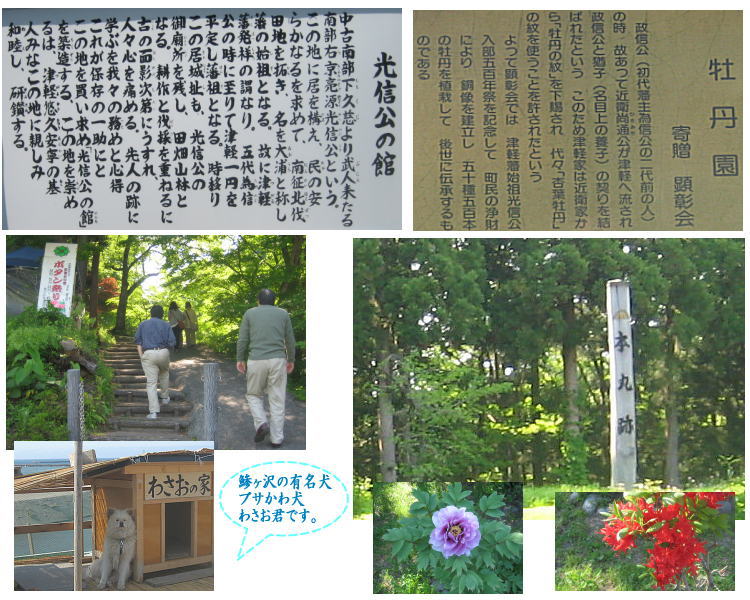 光信公の館
中古南部下久慈より武人来たる
南部右京亮源光信公という。
この地に居を構え、民の安
らかなるを求めて、南征北伐
田地を拓き、名を大浦と称し
藩の始祖となる。故に津軽
藩発祥の謂なり。五代為信
公の時に至りて津軽一円を
平定し藩祖となる。時移り
この居城址も、光信公の
御廟所を残し、田畑山林と
なる。耕作と伐採を重ねるに
古の面影次第にうすれ、
人々心を痛める。先人の跡に
学ぶを我々の務めと心得
これが保存の一助にと
この地を買い求め「光信公の館」
を築造する。この地を崇め
るは、津軽悠久安寧の基
人みなこの地に親しみ
和睦し、研鑽する。
牡丹園
寄贈 顕彰会
政信公(初代藩主為信公の二代前の人)
の時 故あって近衛尚通公が津軽へ流され
政信公と猶子(名目上の養子)の契りを結
ばれたという このため津軽家は近衛家か
ら「牡丹の紋」を下賜され 代々「杏葉牡丹」
の紋を使うことを許されたという
よって顕彰会では 津軽藩始祖光信公
入部五百年祭を記念して 町民の浄財
により 銅像を建立し 五十種五百本
の牡丹を植栽して 後世に伝承するも
のである
ボタン祭り
本丸跡
わさおの家
鰺ヶ沢の有名犬
ブサかわ犬
わさお君です。